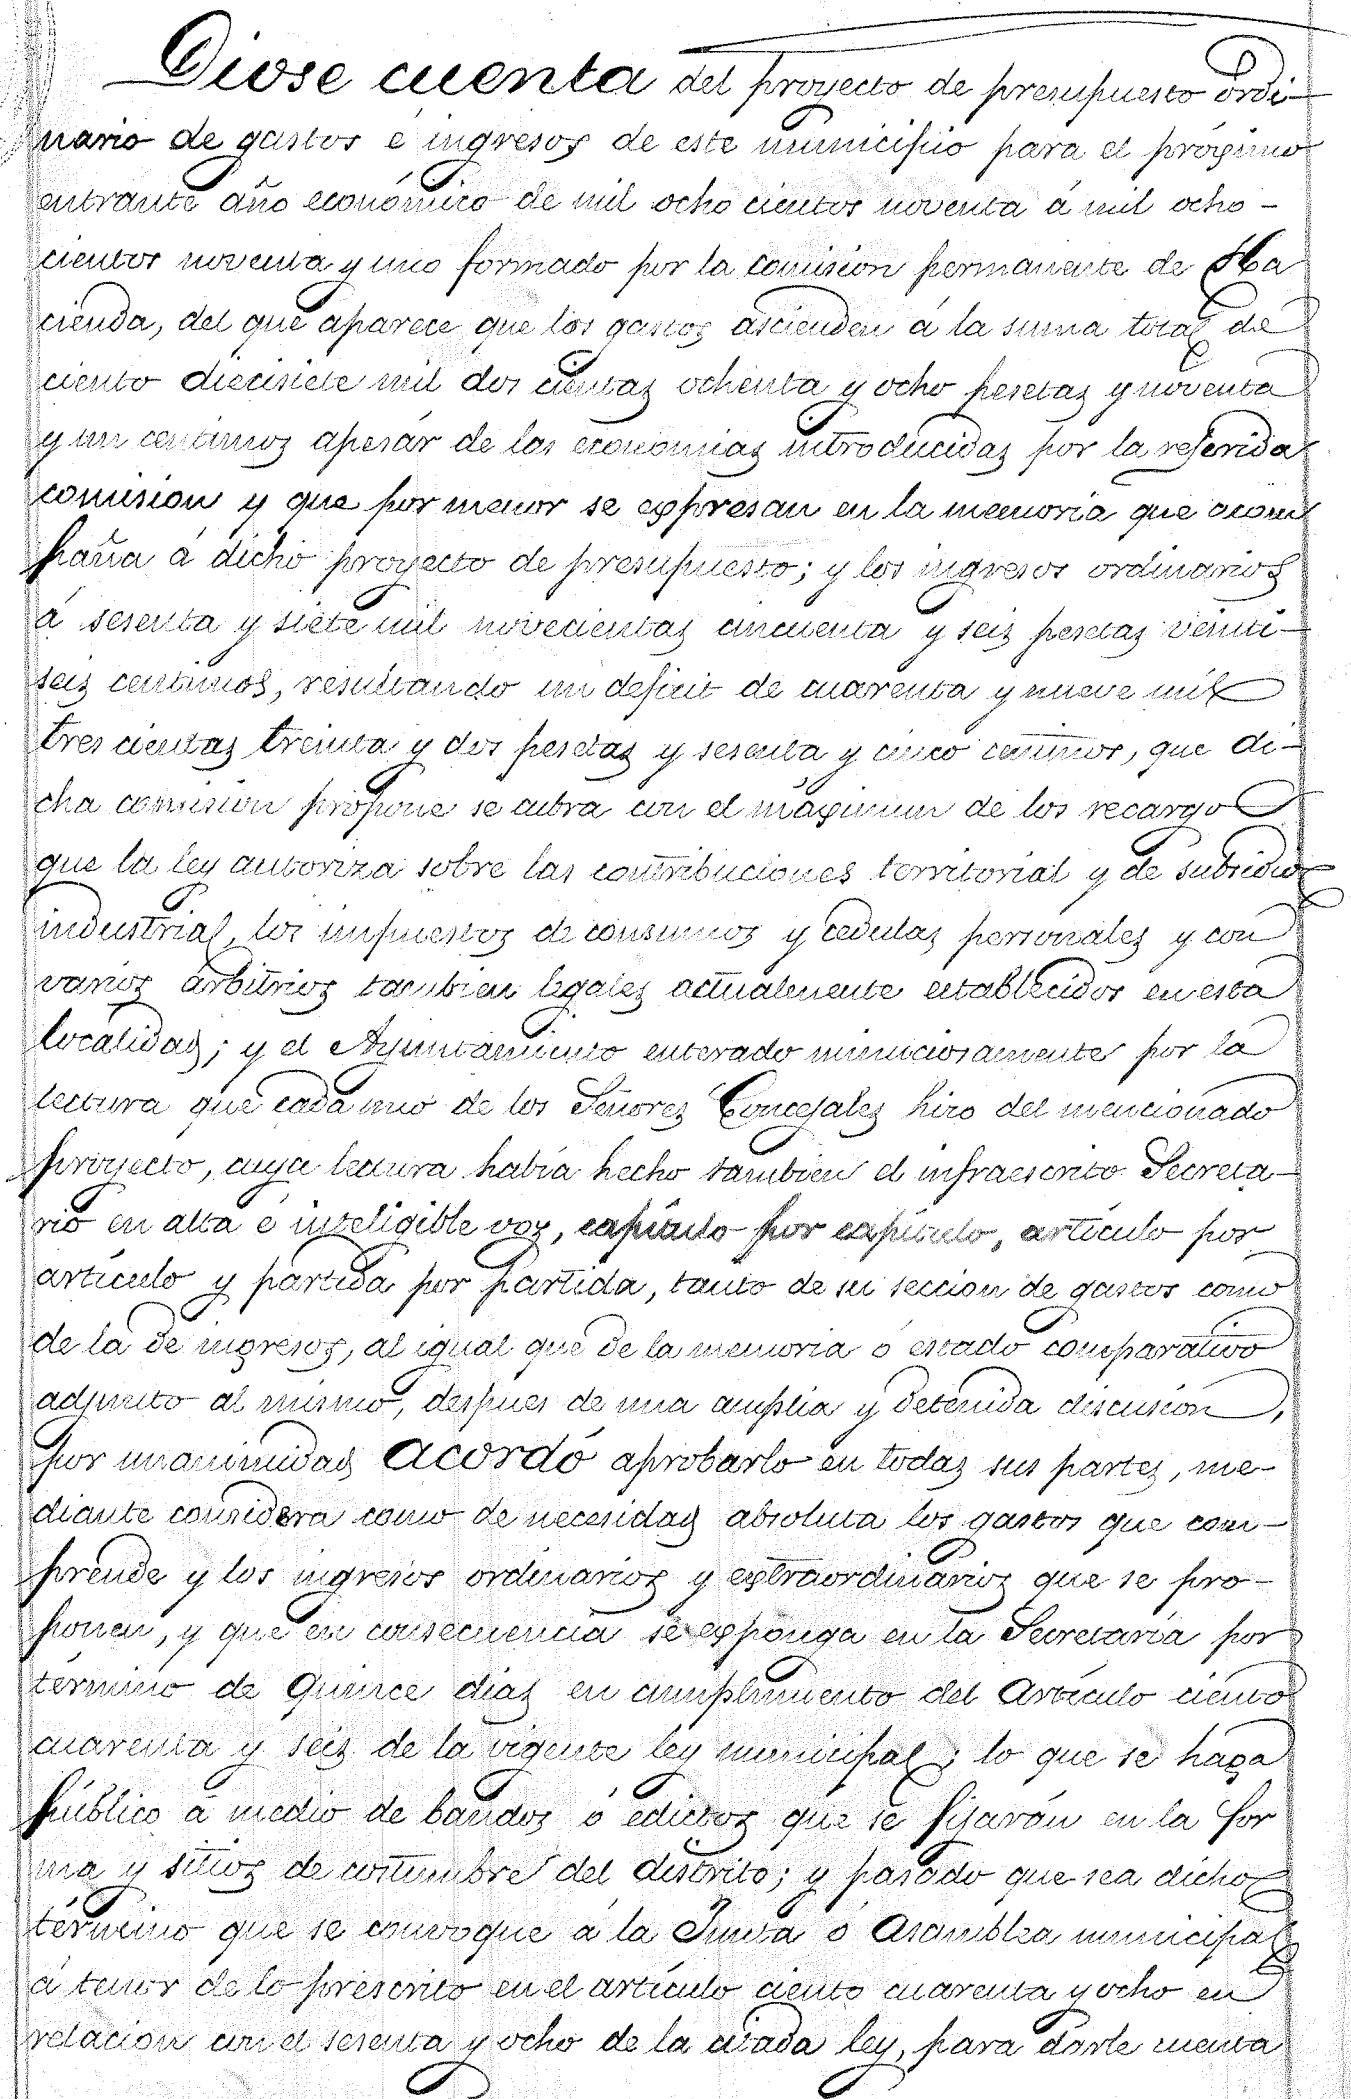 Diose cuenta del proyecto de presupuesto ordi-
nario de gastos é ingresos de este municipio para el próximo
entrante año económico de mil ocho cientos noventa á mil ocho-
cientos noventa y uno formado por la comision permanente de Ha
cienda, del que aparece que los gastos ascienden á la suma total de
ciento diecisiete mil dos cientas ochenta y ocho pesetas y noventa
y un centimos apesár de las economias introducidas por la referida
comision y que por menor se expresan en la memoria que acom
paña á dicho proyecto de presupuesto; y los ingresos ordinarios
á sesenta y siete mil novecientas cincuenta y seis pesetas veinti-
seis centimos, resultando un deficit de cuarenta y nueve mil
tres cientas treinta y dos pesetas y sesenta y cinco centimos, que di-
cha comision propone se cubra con el máximum de los recargo
que la ley autoriza sobre las contribuciones territorial y de subsidio
industrial, los impuestos de consumos y cedulas personales y con
varios arbitrios tambien legales actualmente establecidos en esta
localidad; y el Ayuntamiento enterado minuciosamente por la
lectura que cada uno de los Señores Concejales hizo del mencionado
proyecto, cuya lectura había hecho tambien el infraescrito Secreta-
rio en alta é inteligible voz, capítulo por capítulo, artículo por
artículo y partida por partida, tanto de su seccion de gastos como
de la de ingresos, al igual que de la memoria ó estado comparativo
adjunto al mismo, despues de una amplia y detenida discusion,
por unanimidad acordó aprobarlo en todas sus partes, me-
diante considera como de necesidad absoluta los gastos que com-
prende y los ingresos ordinarios y extraordinarios que se pro-
ponen, y que en consecuencia se exponga en la Secretaría por
término de quince dias en cumplimiento del Artículo ciento
cuarenta y seis de la vigente ley municipal; lo que se haga
público á medio de bandos ó edictos que se fijarán en la for
ma y sitios de costumbre del distrito; y pasado que sea dicho
término que se convoque á la Junta ó Asamblea municipal
á tenor de lo prescrito en el artículo ciento cuarenta y ocho en
relacion con el sesenta y ocho de la citada ley, para darle cuenta